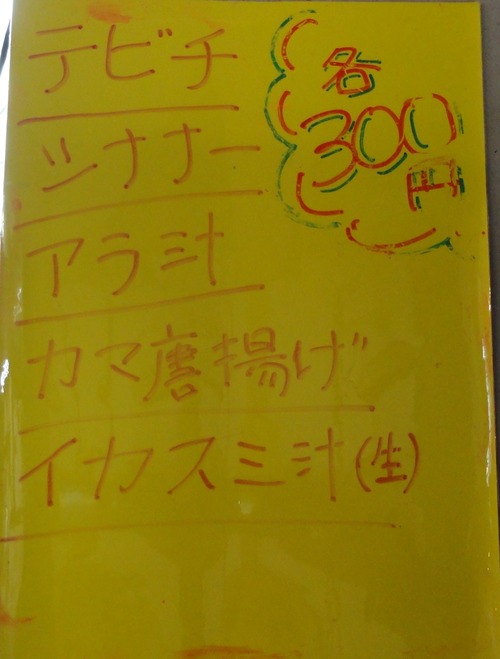 テビチ
シナナー
アラ汁
カマ唐揚げ
イカスミ汁(生)
各
300
円